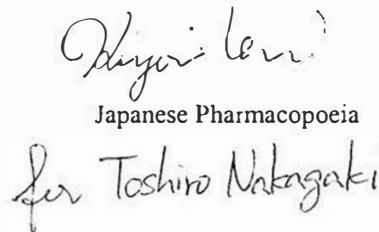 Japanese Pharmacopoeia
for Toshiro Nakagaki